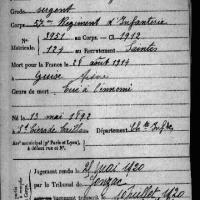 Grade sergent
Corps 57e Régiment d'Infanterie
N° 3981 au Corps. — Cl. 1912
Matricule. 127 au Recrutement Saintes
Mort pour la France le 28 août 1914
à Guise Aisne
Genre de mort Tué à l'ennemi
Né le 13 mai 1892
à St Département
Arr municipal (pr Paris et Lyon),
à défaut rue et N°.
Jugement rendu le 28 mai 1920
par le Tribunal de Jonzac
juillet 1920